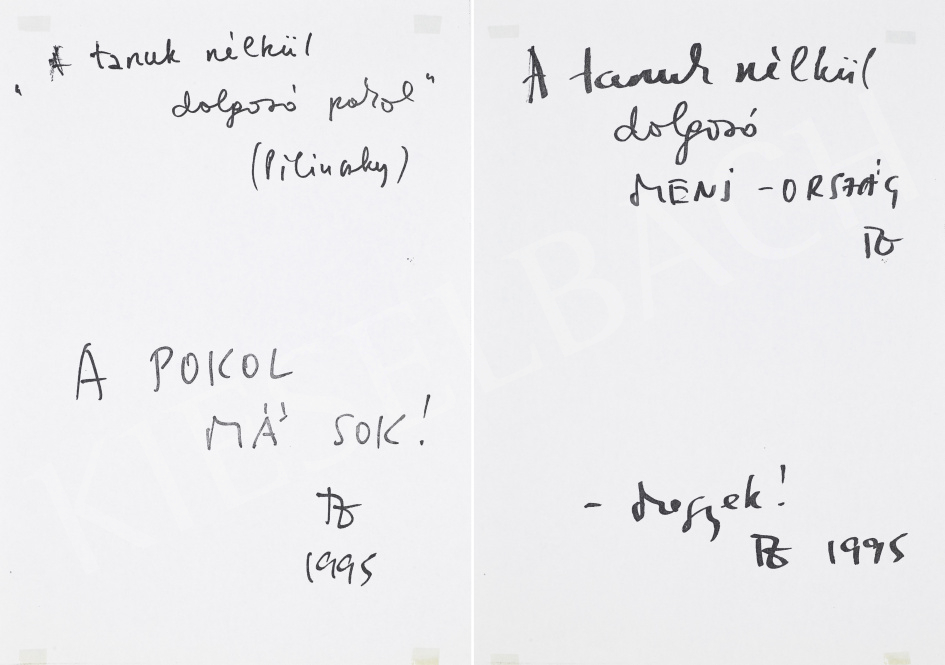 "A tanuk nélkül
dolgozó pokol"
(Pilinszky)
A POKOL
MÁ' SOK!
1995
A tanuk nélkül
dolgozó
MENJ-ORSZÁG
- megyek!
1995
KIESELBACH